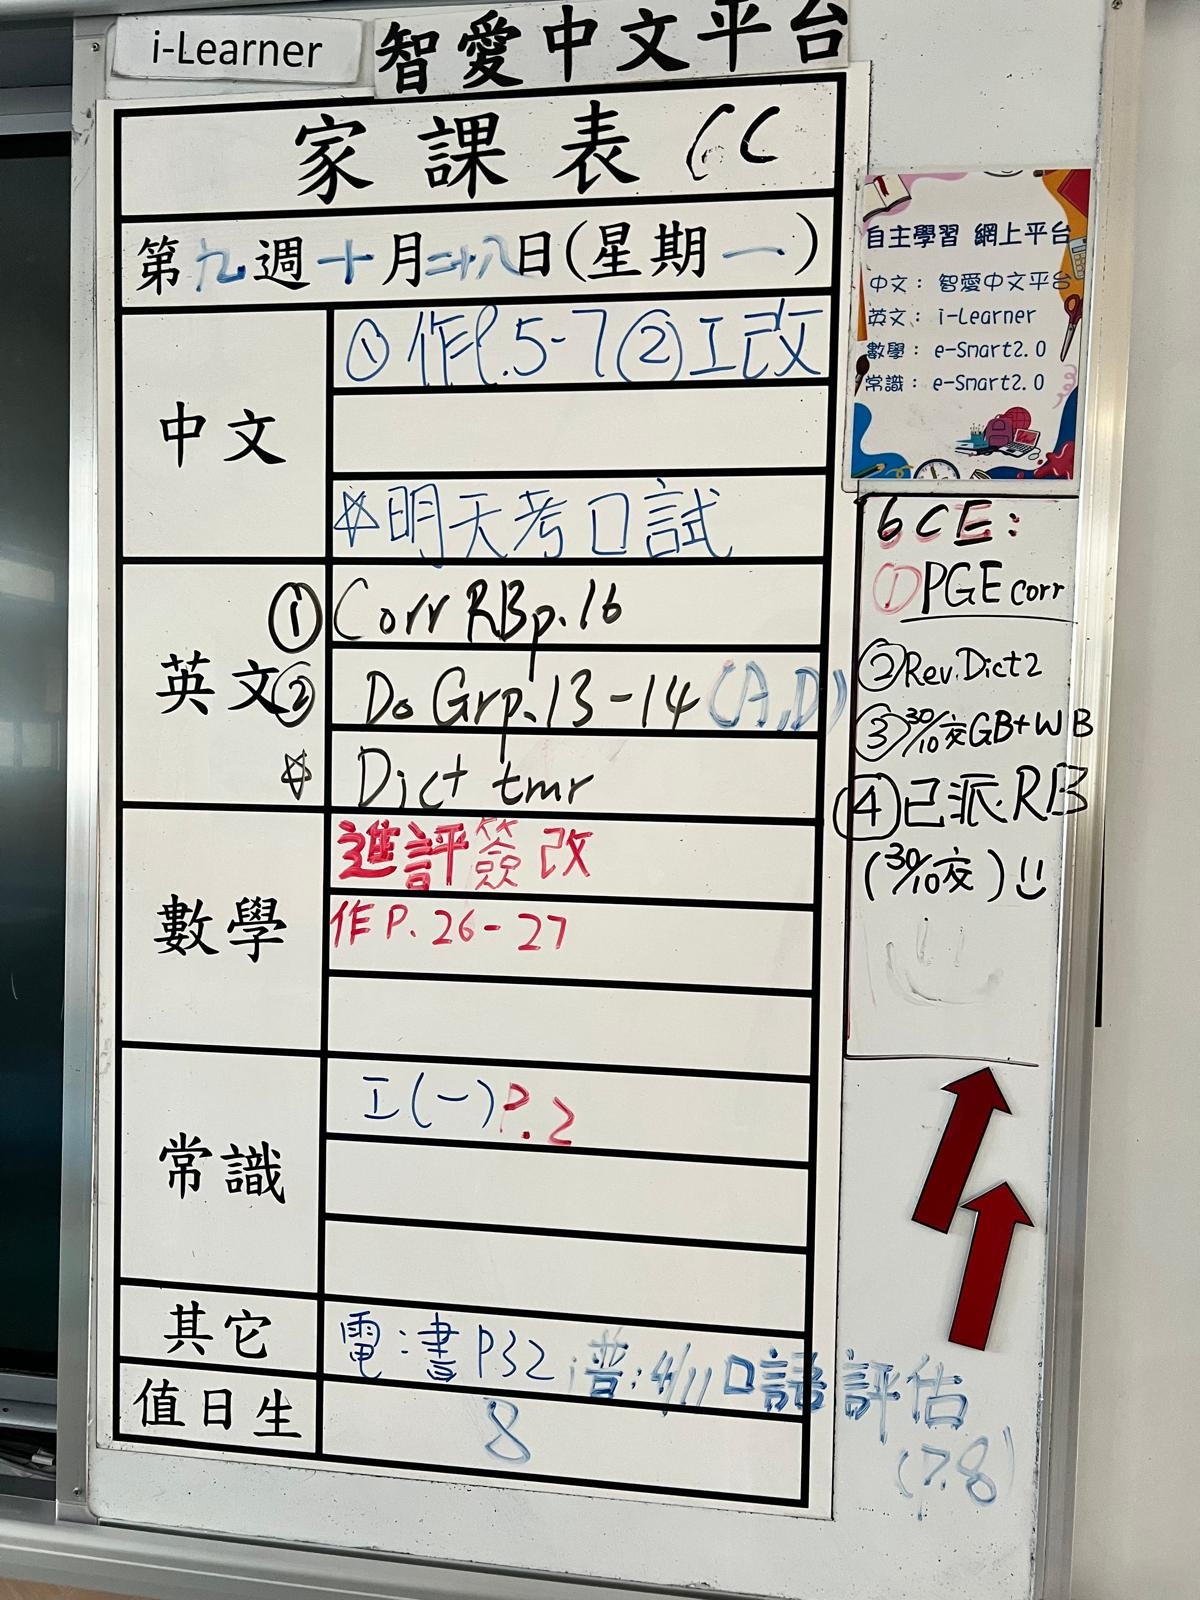 i-Learner 智愛中文平台
家課表 6C
第九週十月二十八日(星期一)
中文
①作P.5-7②工改
☆明天考口試
英文
①Corr RBp.16
②Do Grp.13-14(A,D)
☆Dict tmr
數學
進評簽改
作P.26-27
常識
工(一)P.2
其它
電:書P32 普:4/11口語評估
(7.8)
值日生
8
自主學習 網上平台
中文: 智愛中文平台
英文: i-Learner
數學: e-Smart2.0
常識: e-Smart2.0
6CE:
①PGE corr
②Rev.Dict2
③30/10交GB+WB
④已派RB
(30/10交)